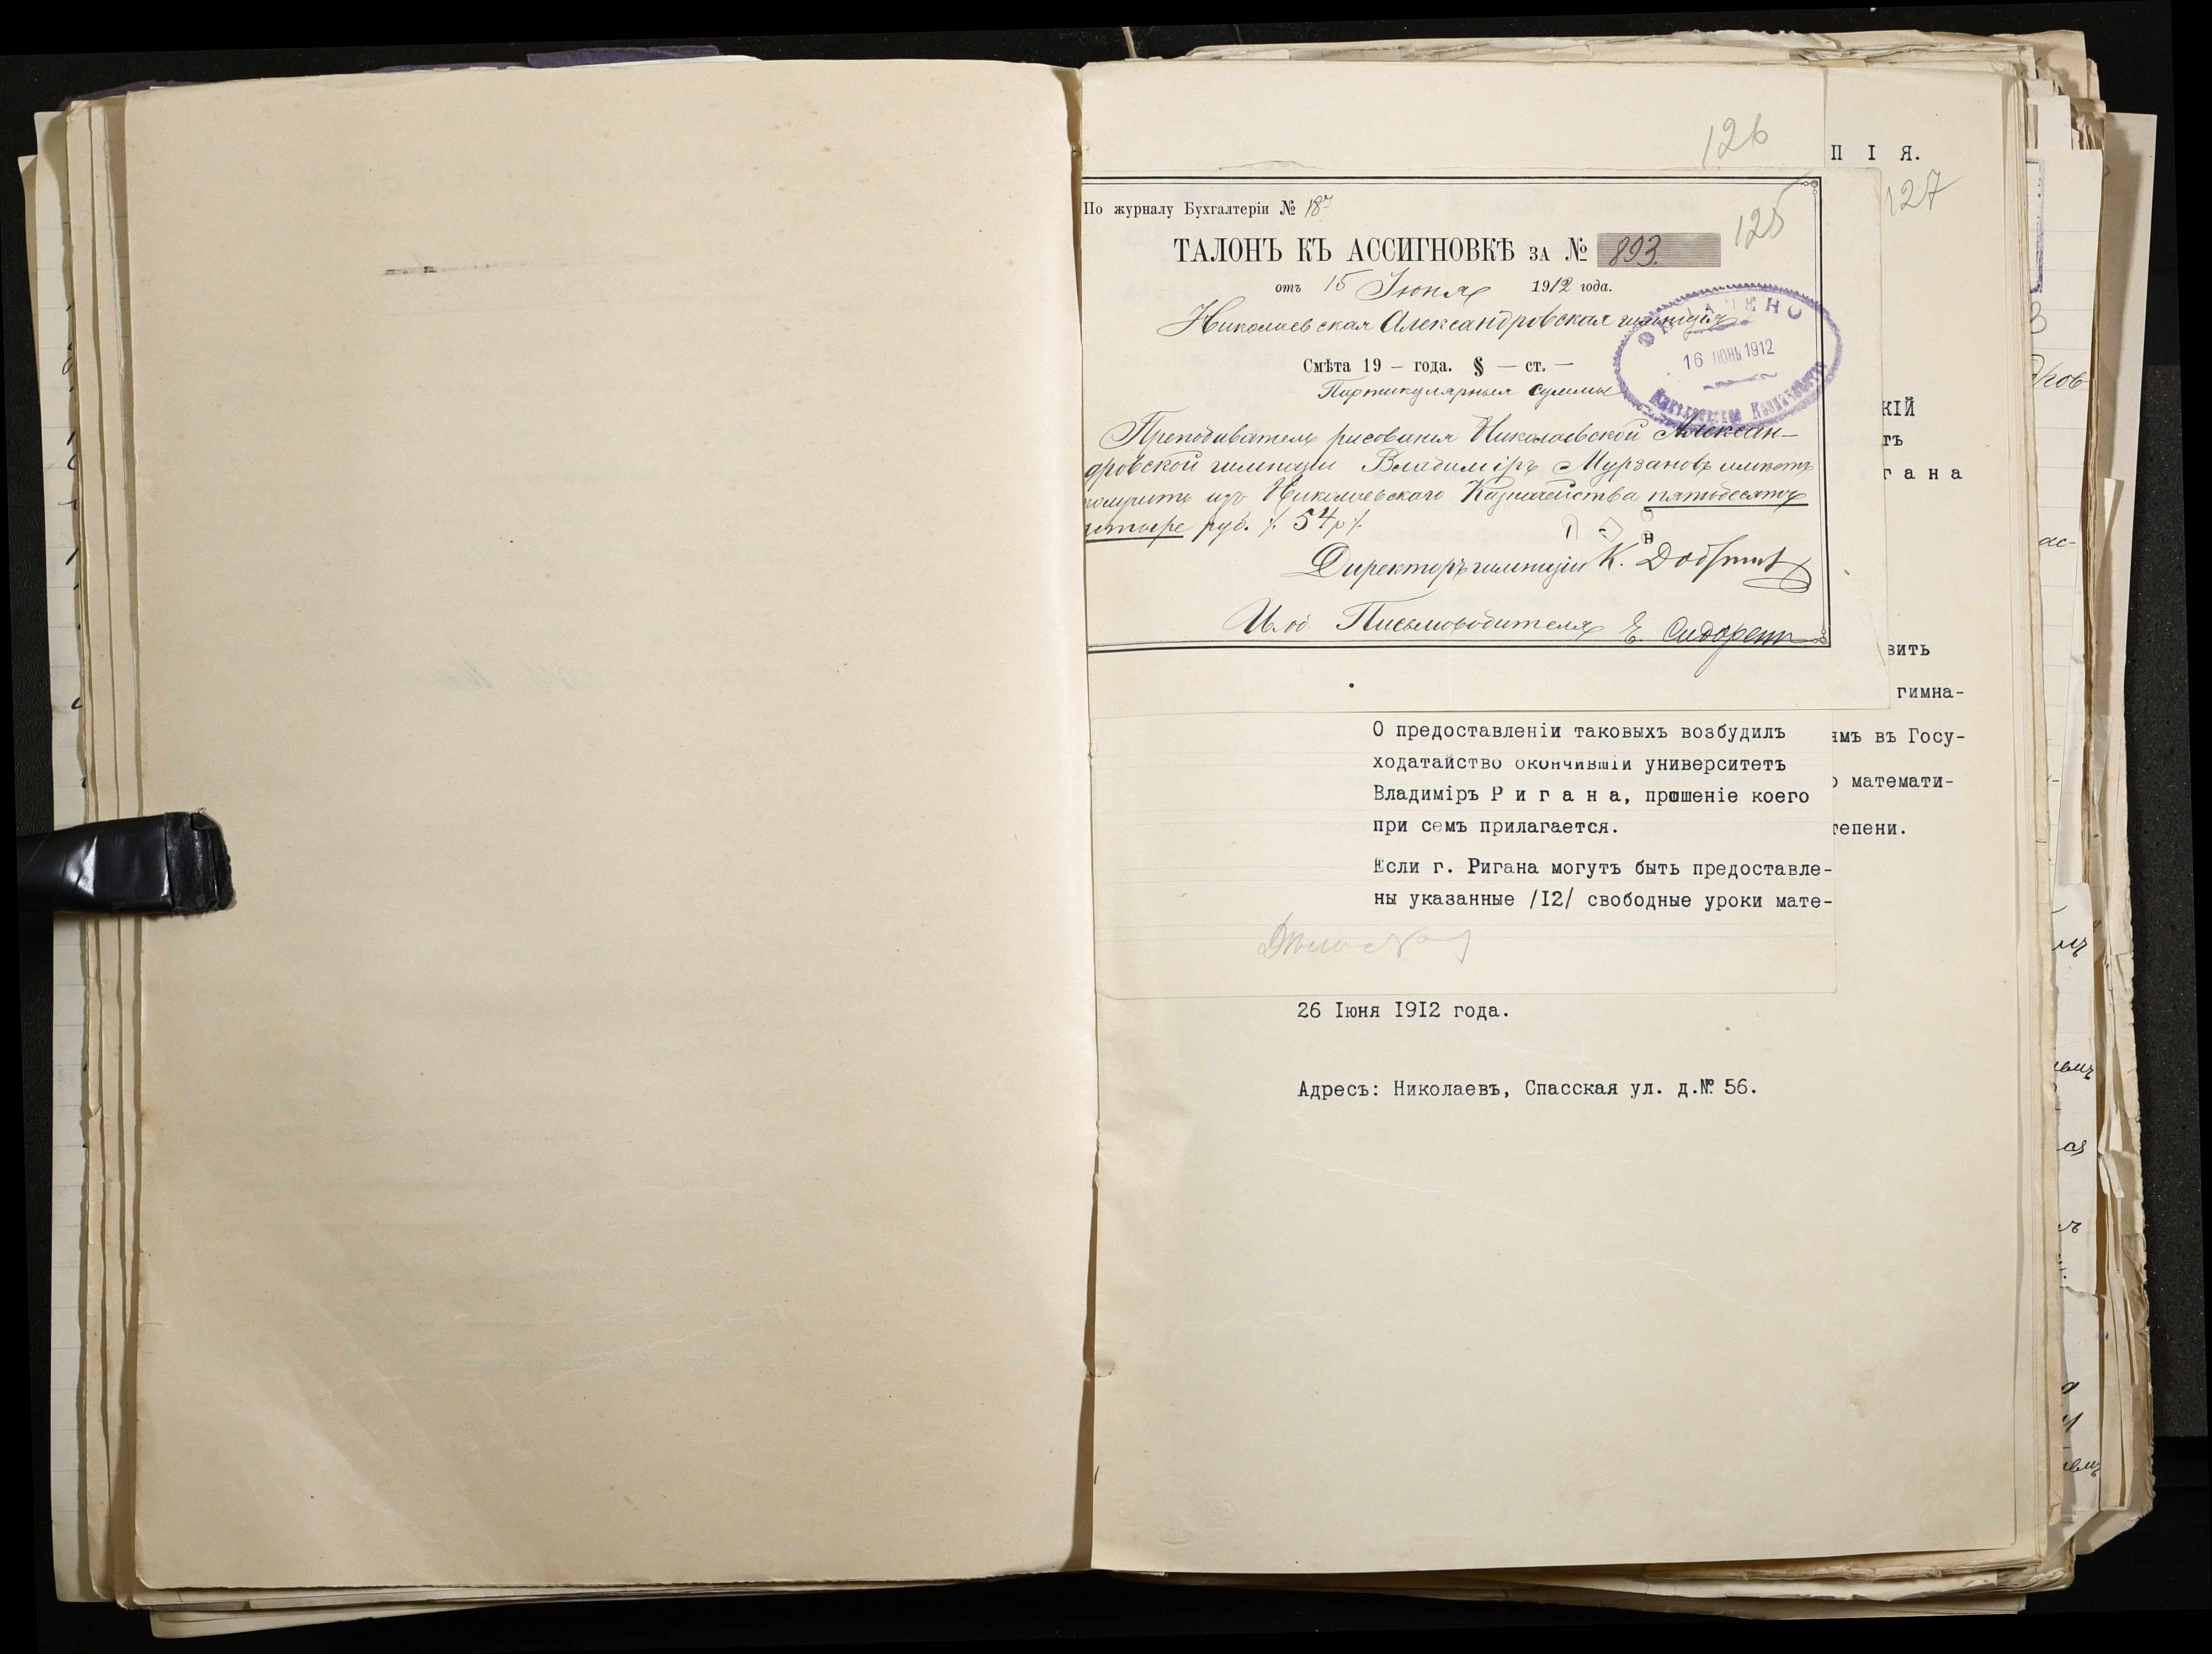 126
П І Я.
127
По журналу Бухгалтеріи № 187
125
ТАЛОНЪ КЪ АССИГНОВКѢ ЗА № 893
отъ 15 Іюня 1912 года.
Николаевская Александровская гимназія
Смѣта 19 — года. § — ст. —
Партикулярныя суммы
16 ІЮНЬ 1912
Казначейство
Преподаватель рисованія Николаевской Алексан-
дровской гимназіи Владиміръ Мурзановъ имѣетъ
получить изъ Николаевскаго Казначейства пятьдесятъ
четыре руб. /. 54 р /.
Директоръ гимназіи К.
И. об. Письмоводителя Е. Сидорен
КІЙ
ТЬ
г а н а
вить
гимна-
ямъ въ Госу-
о математи-
тепени.
О предоставленіи таковыхъ возбудилъ
ходатайство окончившій университетъ
Владиміръ Р и г а н а, прошеніе коего
при семъ прилагается.
Если г. Ригана могутъ быть предоставле-
ны указанные /I2/ свободные уроки мате-
26 Іюня I9I2 года.
Адресъ: Николаевъ, Спасская ул. д.№ 56.